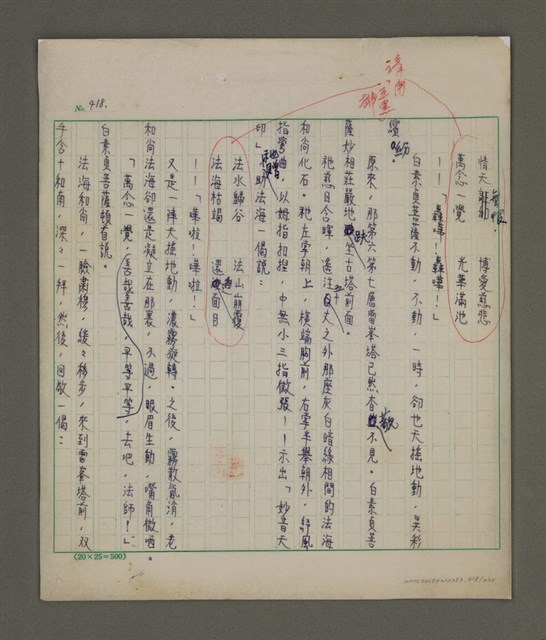 No. 418.
請用
「全黑」
都
無恨
情天 博愛慈悲
萬念一覺 光華滿池
——「轟啦!轟啦!」
白素貞菩薩不動，不動，一時，卻也天搖地動，異彩
繽紛。
原來，那第六第七層雷峯塔已然杳然不見。白素貞菩
薩妙相莊嚴地趺坐古塔前面。
祂慈目含暉，遙注百丈之外那座灰白暗綠相間的法海
和尚化石。祂左掌朝上，橫端胸前，右掌半舉朝外，舒風
指彎曲，以姆指扣捏，中無小三指微張——示出「妙音天
印」，祂贈助法海一偈說：
法水歸谷 法山崩覆
法海枯竭 還迴面目
——「嘩啦!嘩啦!」
又是一陣天搖地動，濃霧旋轉。之後，霧散氣消，老
和尚法海卻還是凝立在那裏。不過，眼眉生動，嘴角微哂。
「萬念一覺，善哉善哉，平等平等，去吧，法師!」
白素貞菩薩頷首說。
法海和尚，一臉肅穆；緩々移步，來到雷峯塔前，双
手合十和南，深々一拜，然後，回敬一偈：
(20×25=500)